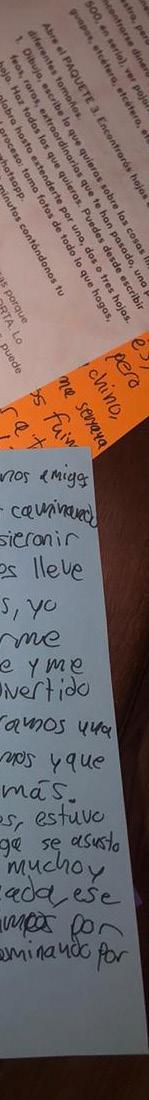 500, en serio), ver pajar
guapos, etcétera, etcétera, et
Abre el PAQUETE 3. Encontrarás hojas
diferentes tamaños.
1. Dibuja, escribe lo que quieras sobre las cosas
feas, raras, extraordinarias que te han pasado, una p
hoja. Haz todas las que quieras. Puedes desde escribi
hasta extenderte por una, dos o tres hojas.
proceso: toma fotos de todo lo que hagas,
whatsapp.
minutos contándonos tu
porque
ORTA. Lo
puede
es,
pero
chino,
semana
fuim
nos amigos
caminando
sieron ir
es lleve
s, yo
rme
e y me
ivertido
ramos una
mos y que
más.
os, estuvo
ga se asusto
mucho y
ada, ese
por
aminando por